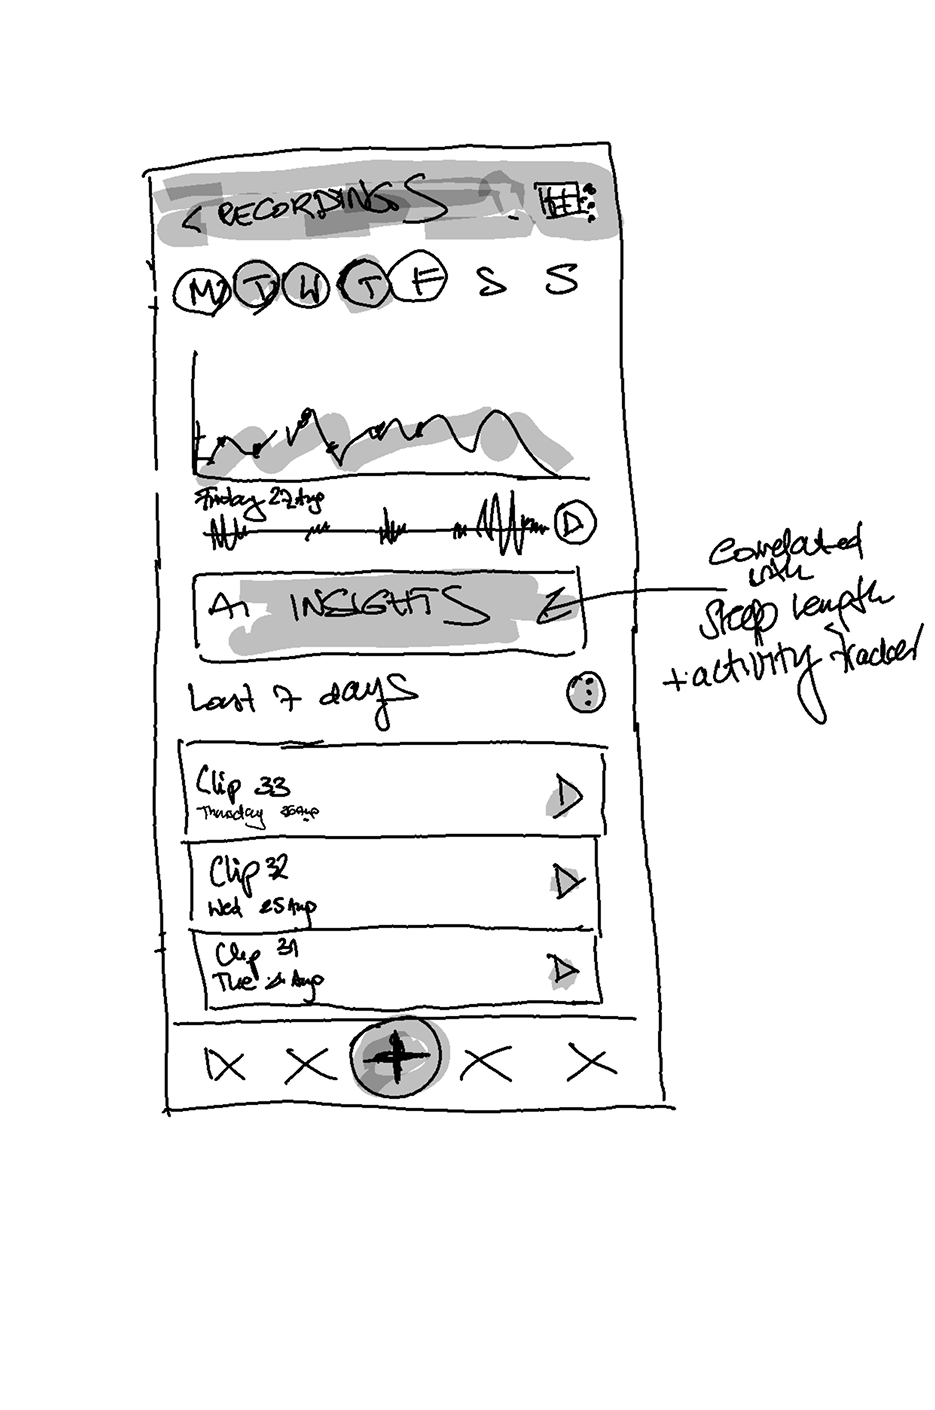 < RECORDINGS
M T W T F S S
Friday 27 Aug
AI INSIGHTS
Correlated
with
Sleep length
+ activity tracker
Last 7 days
Clip 33
Thursday 26 Aug
Clip 32
Wed 25 Aug
Clip 31
Tue 24 Aug